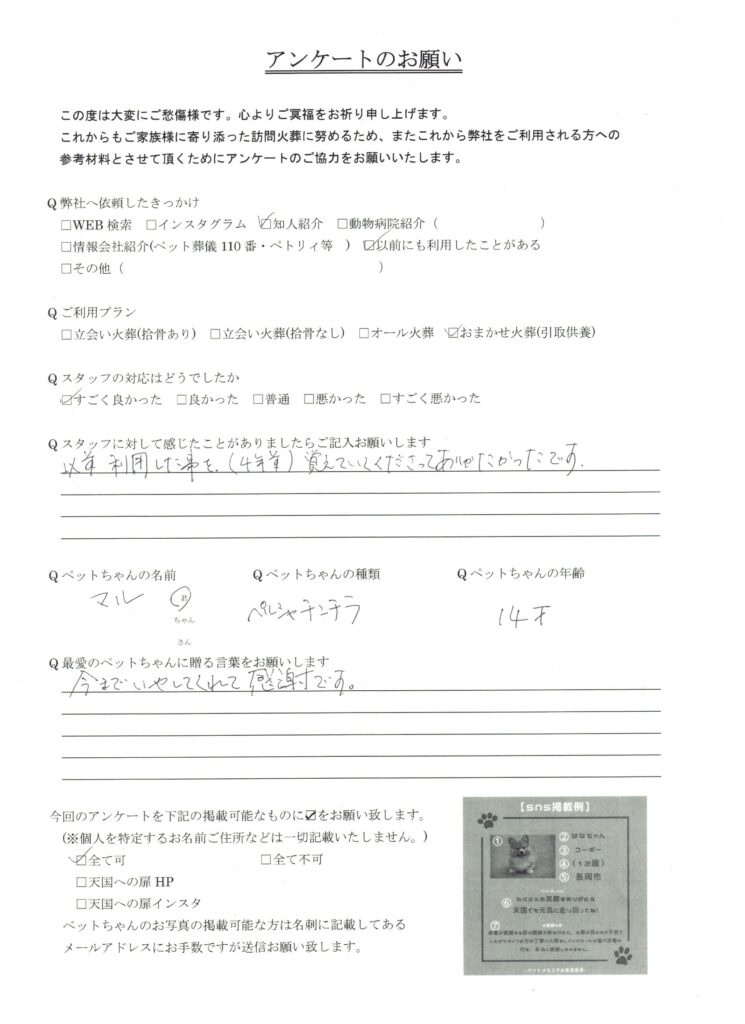 アンケートのお願い
この度は大変にご愁傷様です。心よりご冥福をお祈り申し上げます。
これからもご家族様に寄り添った訪問火葬に努めるため、またこれから弊社をご利用される方への
参考材料とさせて頂くためにアンケートのご協力をお願いいたします。
Q 弊社へ依頼したきっかけ
□WEB 検索 □インスタグラム ☑知人紹介 □動物病院紹介（ ）
□情報会社紹介(ペット葬儀 110 番・ペトリィ等 ) ☑以前にも利用したことがある
□その他（ ）
Q ご利用プラン
□立会い火葬(拾骨あり) □立会い火葬(拾骨なし) □オール火葬 ☑おまかせ火葬(引取供養)
Q スタッフの対応はどうでしたか
☑すごく良かった □良かった □普通 □悪かった □すごく悪かった
Q スタッフに対して感じたことがありましたらご記入お願いします
以前利用した事を、(4年前)覚えていてくださってありがたかったです.
Q ペットちゃんの名前 Q ペットちゃんの種類 Q ペットちゃんの年齢
マル 君 ペルシャチンチラ 14才
ちゃん
さん
Q 最愛のペットちゃんに贈る言葉をお願いします
今までいやしてくれて感謝です。
今回のアンケートを下記の掲載可能なものに☑をお願い致します。
(※個人を特定するお名前ご住所などは一切記載いたしません。)
☑全て可 □全て不可
□天国への扉 HP
□天国への扉インスタ
ペットちゃんのお写真の掲載可能な方は名刺に記載してある
メールアドレスにお手数ですが送信お願い致します。
【sns掲載例】
① ② はなちゃん
③ コーギー
④ (12歳)
⑤ 長岡市
⑥ たくさんの笑顔をありがとう
天国でも元気に走り回ってね!
⑦